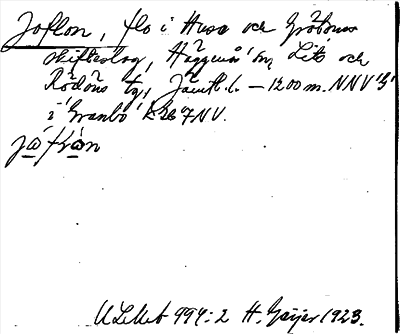 Joflon, flo i Huse och Gråbous
skifteslag, Häggenås sn, Lits och
Rödöns tg, Jämtl. l. – 1200 m. NNV 'G'
i 'Granbo' K 26 7 NV.
ULMA 994:2 H. Geijer 1923.